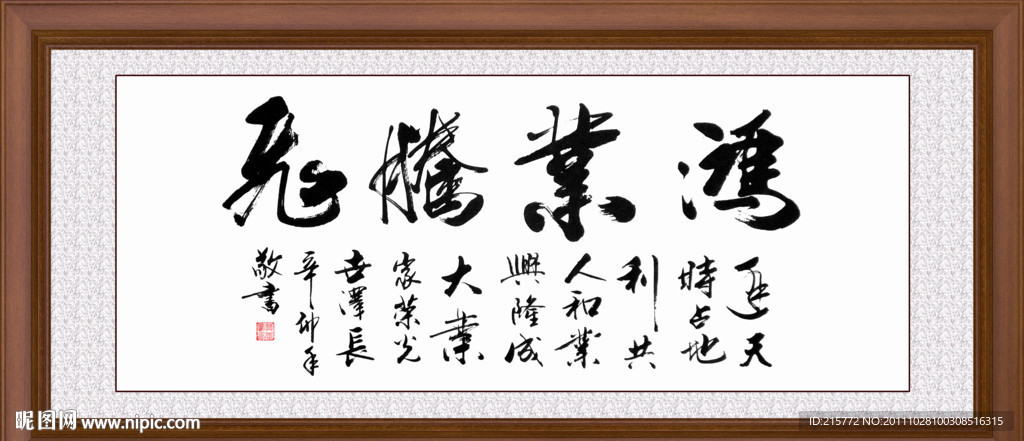 鴻業騰飛
逢天
時占地
利共
人和業
興隆成
大業
家榮光
世澤長
辛卯年
敬書
昵图网 www.nipic.com
ID:215772 NO:20111028100308516315